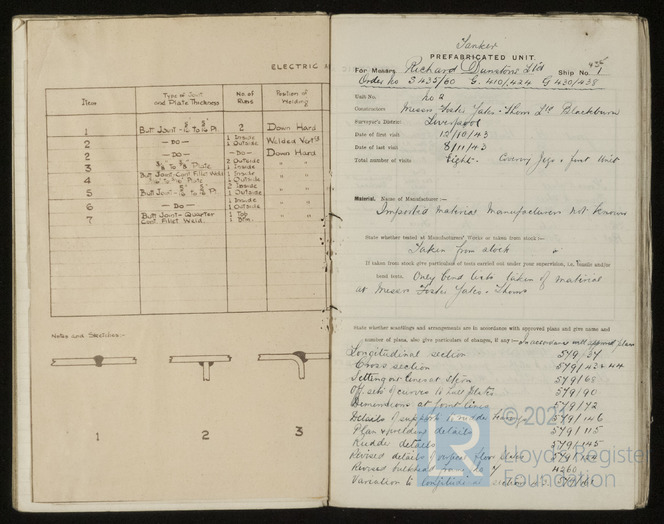 ELECTRIC A
Item
Type of Joint and Plate Thickness
No. of Runs
Position of Welding
1 Butt Joint - 2 Down Hand
2 - DO - 1 Inside 1 Outside Welded Vert'l
2 - DO - - DO - Down Hand
3 Plate 2 Outside 1 Inside " "
4 Butt Joint - Cont. Fillet Weld Plate 1 Inside 1 Outside " "
5 Butt Joint - 2 Inside 1 Outside " "
6 - DO - 1 Inside 1 Outside " "
7 Butt Joint - Quarter Cont. Fillet Weld. 1 Top 1 Btm. " "
Notes and Sketches:-
1
2
3
Tanker
PREFABRICATED UNIT.
For Messrs. Richard Dunstons Ltd Ship No.
Order No S 435/60 G. 410/424 G 430/438
Unit No. No 2
Constructors Messrs Foster Yates & Thom Ltd Blackburn
Surveyor's District Liverpool
Date of first visit 12/10/43
Date of last visit 8/11/43
Total number of visits Eight. Covering Jigs & first Unit
Material. Name of Manufacturer :-
Imported material Manufacturers not known
State whether tested at Manufacturers' Works or taken from stock :-
Taken from stock
If taken from stock give particulars of tests carried out under your supervision, i.e. tensile and/or
bend tests. Only bend tests taken of material
at Messrs Foster Yates & Thoms
State whether scantlings and arrangements are in accordance with approved plans and give name and
number of plans, also give particulars of changes, if any :- In accordance with approved plans
Longitudinal section 579/
Cross section 579/
579/68
Off sets of curves to hull plates 579/90
Dimensions at joint lines 579/72
Details of support to rudder bearings 579/146
Plan & welding details 579/115
Rudder details 579/145
Revised details floor plates 579/
Revised bulkhead 4260
Variation to longitudinal sections 579/
© 202
Lloyd's Register
Foundation
LR